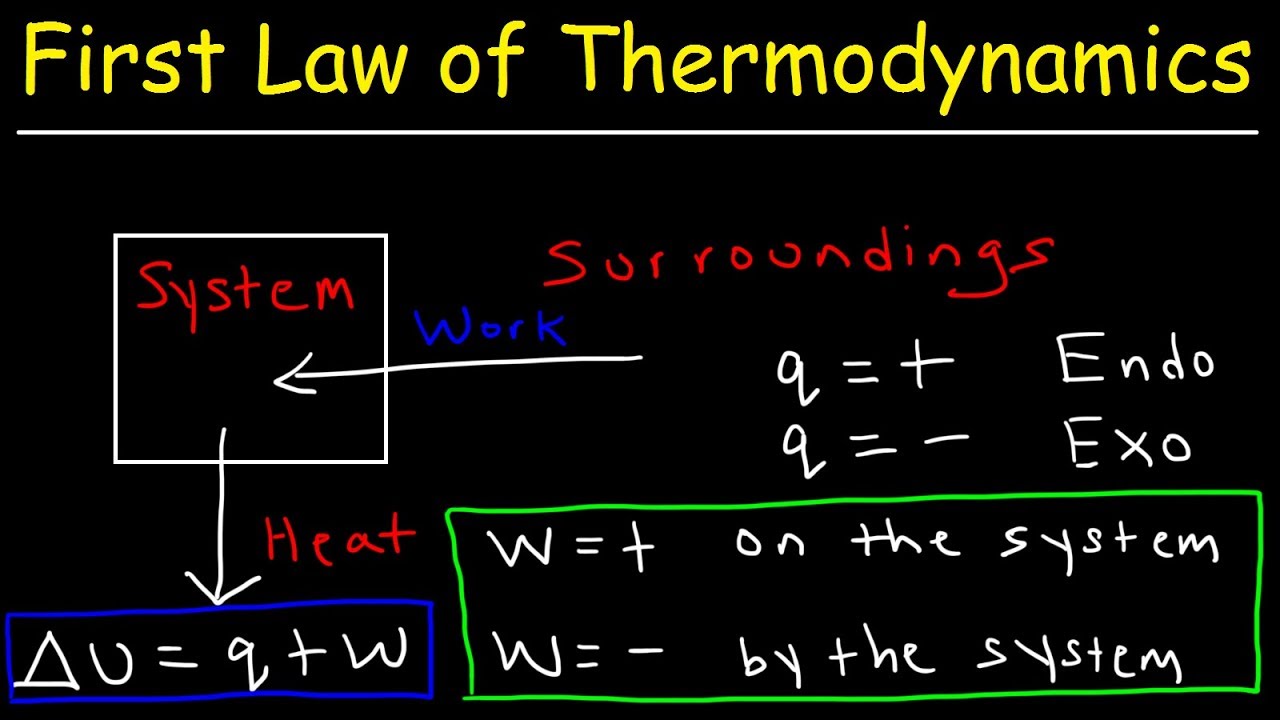 First Law of Thermodynamics
System
Surroundings
Work
q = + Endo
q = - Exo
Heat
W = + on the system
W = - by the system
ΔU = q + W